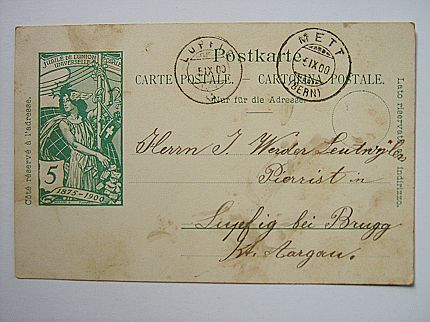 JUBILÉ DE L'UNION
UNIVERSELLE
5
1875-1900
Postkarte
CARTE POSTALE. – CARTOLINA POSTALE.
Nur für die Adresse.
Côté réservé à l'adresse.
Lato riservato
indirizzo.
LUPFIG
5 IX 00
METT
IX 00
(BERN)
Herrn J. Werder Leutwyler
Pierrist in
Lupfig bei Brugg
Kt. Aargau.